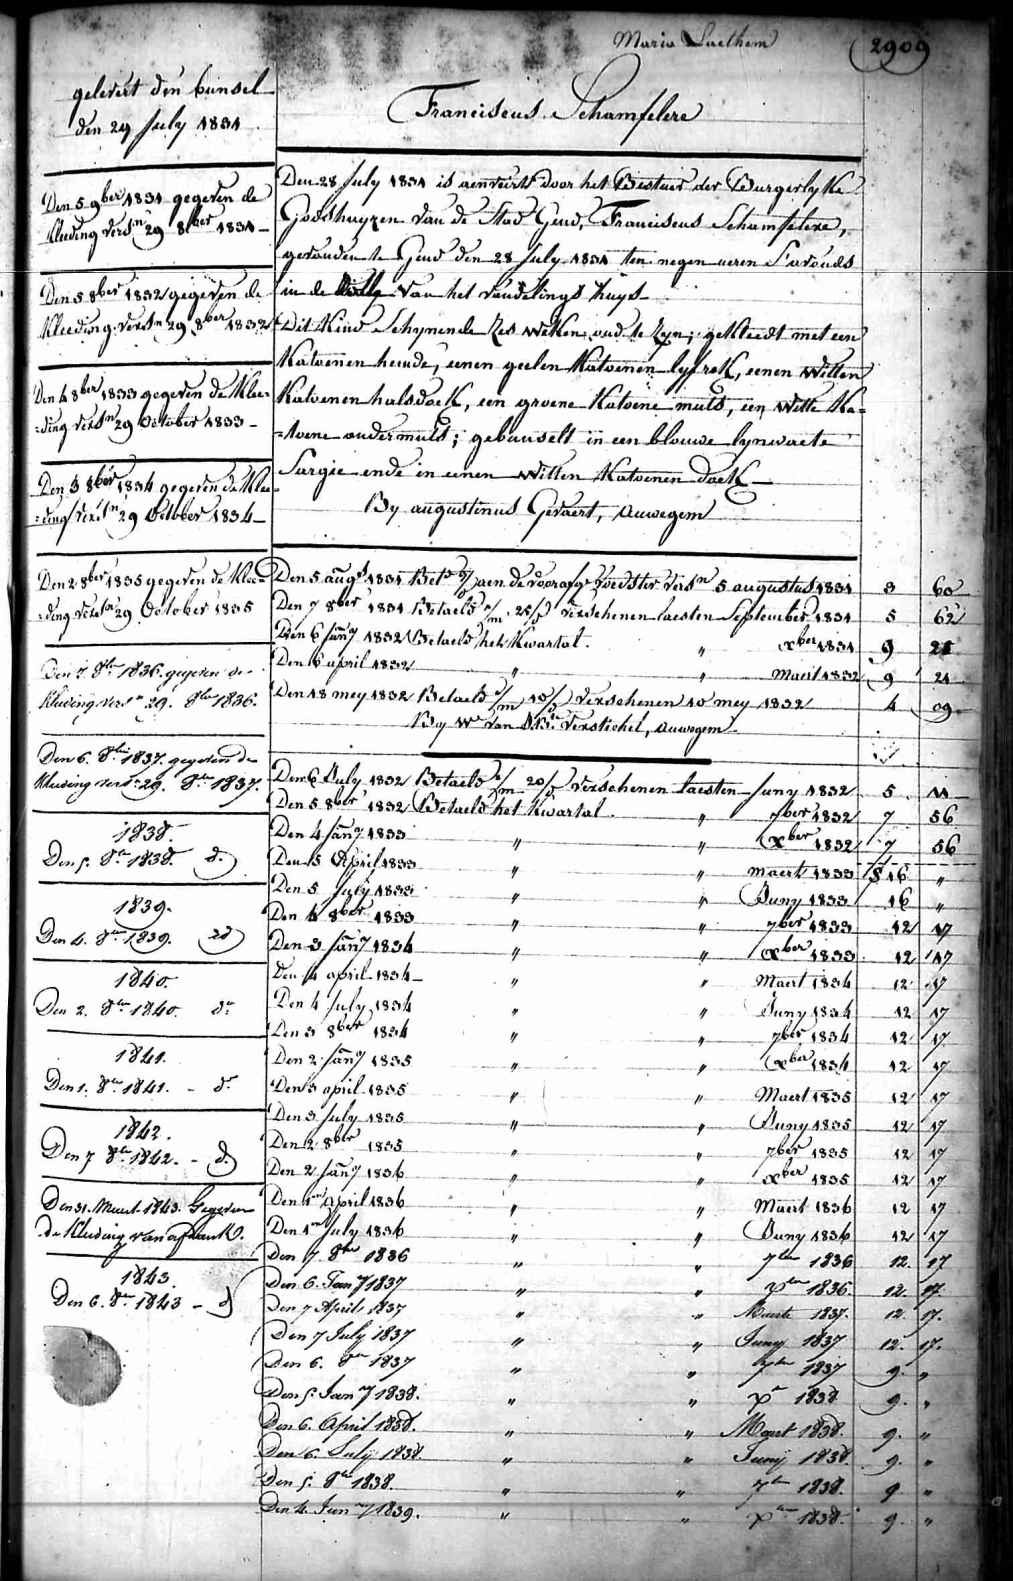 Maria Laethem
2909
gelevert den bunsel
den 29 July 1831
Franciscus Schamfelere
Den 5 9ber 1831 gegeven de
kleeding versn 29 8ber 1831 –
Den 5 8ber 1832 gegeven de
kleeding versn 29 8ber 1832
Den 4 8ber 1833 gegeven de klee-
=ding versn 29 October 1833 –
Den 3 8ber 1834 gegeven de klee
=ding versn 29 October 1834 –
Den 2 8ber 1835 gegeven de klee=
=ding versn 29 October 1835
Den 7. 8br 1836. gegeven de
kleeding versn 29. 8br 1836.
Den 6. 8br 1837. gegeven de
kleeding versn 29. 8br 1837.
1838.
Den 5. 8br 1838. do
1839.
Den 4. 8br 1839. do
1840.
Den 2. 8br 1840. do
1841.
Den 1. 8br 1841. – do
1842.
Den 7 8br 1842. – do
Den 31. Maart 1843. Gegeven
de Kleeding van
1843.
Den 6. 8br 1843 – do
Den 28 July 1831 is aenveert door het Bestuer der Burgerlyke
Godshuyzen van de Stad Gend, Franciscus Schamfelere,
gevonden te Gend den 28 July 1831 ten negen ueren s'avonds
in de van het vondelings huys –
Dit Kind Schynende Zes weken oud te Zyn; gekleedt met een
Katoenen hemde, eenen geelen Katoenen lyfrok, eenen witten
Katoenen halsdoek, een groene Katoene muts, een witte Ka-
=toene ondermuts; gebunselt in een blouwe lynwaete
Sargie ende in eenen witten Katoenen doek –
By augustinus Gevaert, auwegem
Den 5 augt 1831 Betd aen de voorafge voedster versn 5 augustus 1831 3 60
Den 7 8ber 1831 Betaeld 25/ verschenen laesten September 1831 5 62
Den 6 Jany 1832 Betaeld het Kwartal. " xber 1831 9 21
Den 6 april 1832 " " Maert 1832 9 21
Den 18 mey 1832 Betaeld verschenen 10 mey 1832 4 09
By We van Verstichel, auwegem
Den 6 July 1832 Betaeld 20/ verschenen laesten Juny 1832 5 11
Den 5 8ber 1832 Betaeld het Kwartal. " 7ber 1832 7 56
Den 4 Jany 1833 " " xber 1832 7 56
Den 5 April 1833 " " maert 1833 16 "
Den 5 July 1833 " " Juny 1833 16 "
Den 4 8ber 1833 " " 7ber 1833 12 17
Den 3 Jany 1834 " " xber 1833 12 17
Den 4 april 1834 – " " Maert 1834 12 17
Den 4 July 1834 " " Juny 1834 12 17
Den 3 8ber 1834 " " 7ber 1834 12 17
Den 2 Jany 1835 " " xber 1834 12 17
Den 3 april 1835 " " Maert 1835 12 17
Den 3 July 1835 " " Juny 1835 12 17
Den 2 8ber 1835 " " 7ber 1835 12 17
Den 2 Jany 1836 " " xber 1835 12 17
Den 1en April 1836 " " Maert 1836 12 17
Den 1en July 1836 " " Juny 1836 12 17
Den 7 8br 1836 " " 7br 1836 12. 17
Den 6. Jany 1837 " " xbr 1836. 12. 17.
Den 7 April 1837 " " Maerte 1837. 12 17.
Den 7 July 1837 " " Juny 1837 12. 17.
Den 6. 8br 1837 " " 7br 1837 9. "
Den 5. Jany 1838. " " xr 1838 9. "
Den 6. April 1838. " " Maert 1838. 9. "
Den 6. July 1838. " " Juny 1838. 9. "
Den 5. 8br 1838. " " 7br 1838. 9 "
Den 4. Jany 1839. " " xbr 1838. 9. "